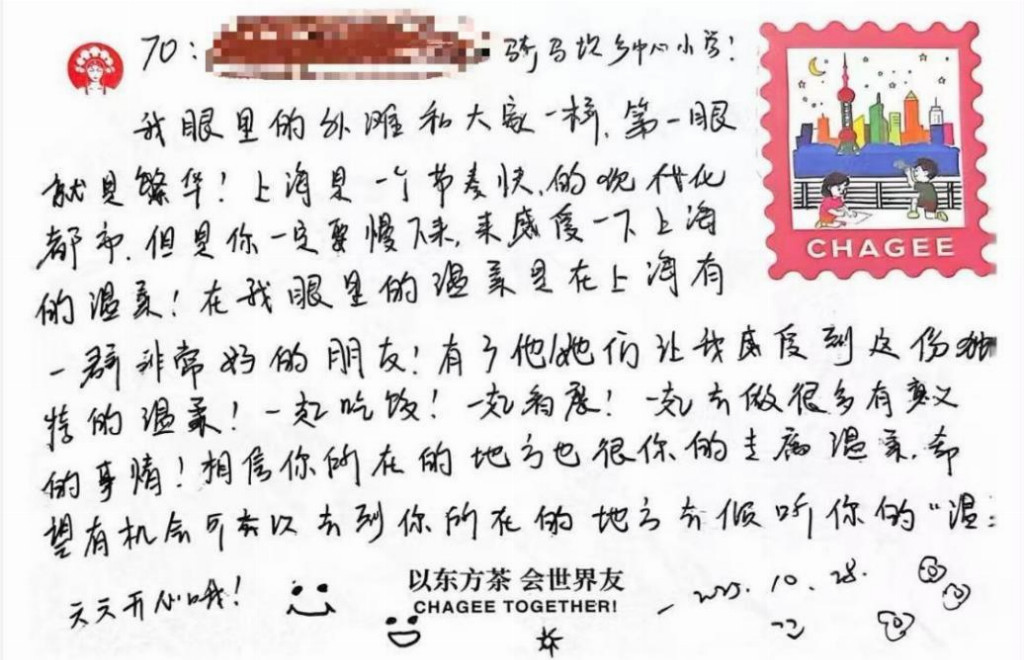 TO: 骑马坎乡中心小学!
我眼里的外滩和大家一样,第一眼
就是繁华!上海是一个节奏快的现代化
都市,但是你一定要慢下来,来感受一下上海
的温柔!在我眼里的温柔是在上海有
一群非常好的朋友!有了他/她们让我感受到这份独
特的温柔!一起吃饭!一起看展!一起去做很多有意义
的事情!相信你所在的地方也很你的温柔,希
望有机会可以去到你所在的地方去倾听你的“温
天天开心哦!
CHAGEE
以东方茶 会世界友
CHAGEE TOGETHER!
2025.10.28.